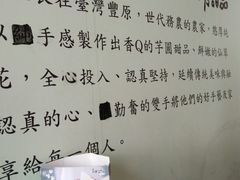 長在臺灣豐原，世代務農的農家，憨厚
以純手感製作出香Q的芋圓甜品、鮮嫩的仙草
花，全心投入、認真堅持，延續傳統美味與
認真的心、勤奮的雙手將他們的好手藝
享給每一個人。